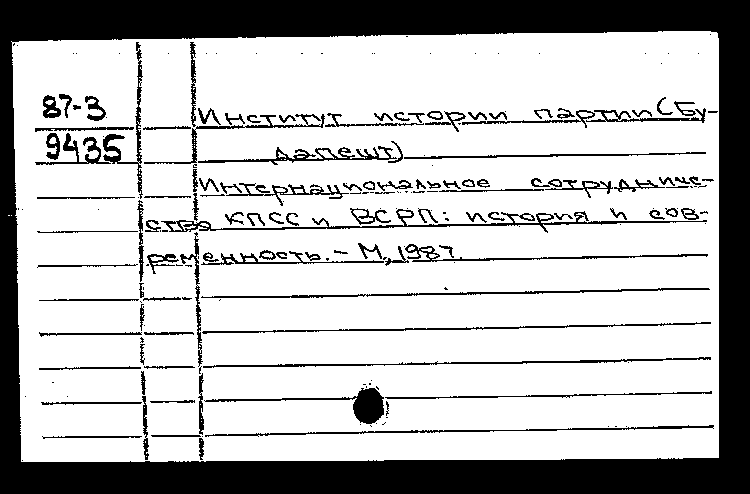 87-3
Институт истории партии (Бу-
9435
дапешт)
Интернациональное сотрудниче-
ство КПСС и ВСРП: история и сов-
ременность. - М, 1987.